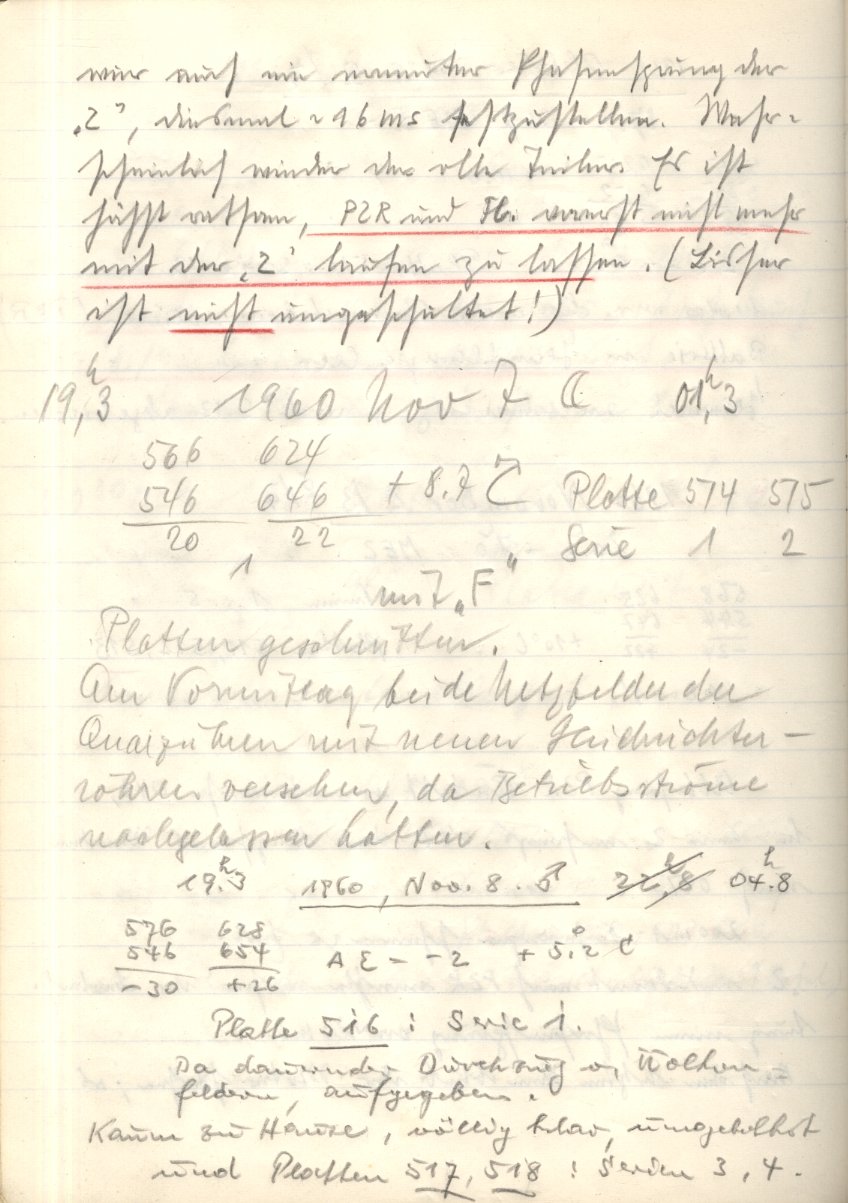 war auch ein erneuter Phasensprung der
„Z“, diesmal ~ 16 ms festzustellen. Wahr-
scheinlich wieder der alte Teiler. Es ist
höchst ratsam, PZR und Hb. vorerst nicht mehr
mit der „Z“ laufen zu lassen. (Bisher
ist nicht umgeschaltet!)
19,ʰ3 1960 Nov 7 ☾ 01,ʰ3
566 624
546 646 + 8.7 °C Platte 514 515
20 22 Serie 1 2
1
mit „F“
Platten geschnitten.
Am Vormittag beide Netzfelder der
Quarzuhren mit neuen Gleichrichter-
röhren versehen, da Betriebsströme
nachgelassen hatten.
19.ʰ3 1960, Nov. 8. ♂ 22.ʰ8 04.ʰ8
576 628
546 654 Δ Σ = -2 + 5.°2 C
-30 +26
Platte 516 : Serie 1.
Da dauernder Durchzug v. Wolken
feldern, aufgegeben.
Kaum zu Hause, völlig klar, umgekehrt
und Platten 517, 518 : Serien 3, 4.